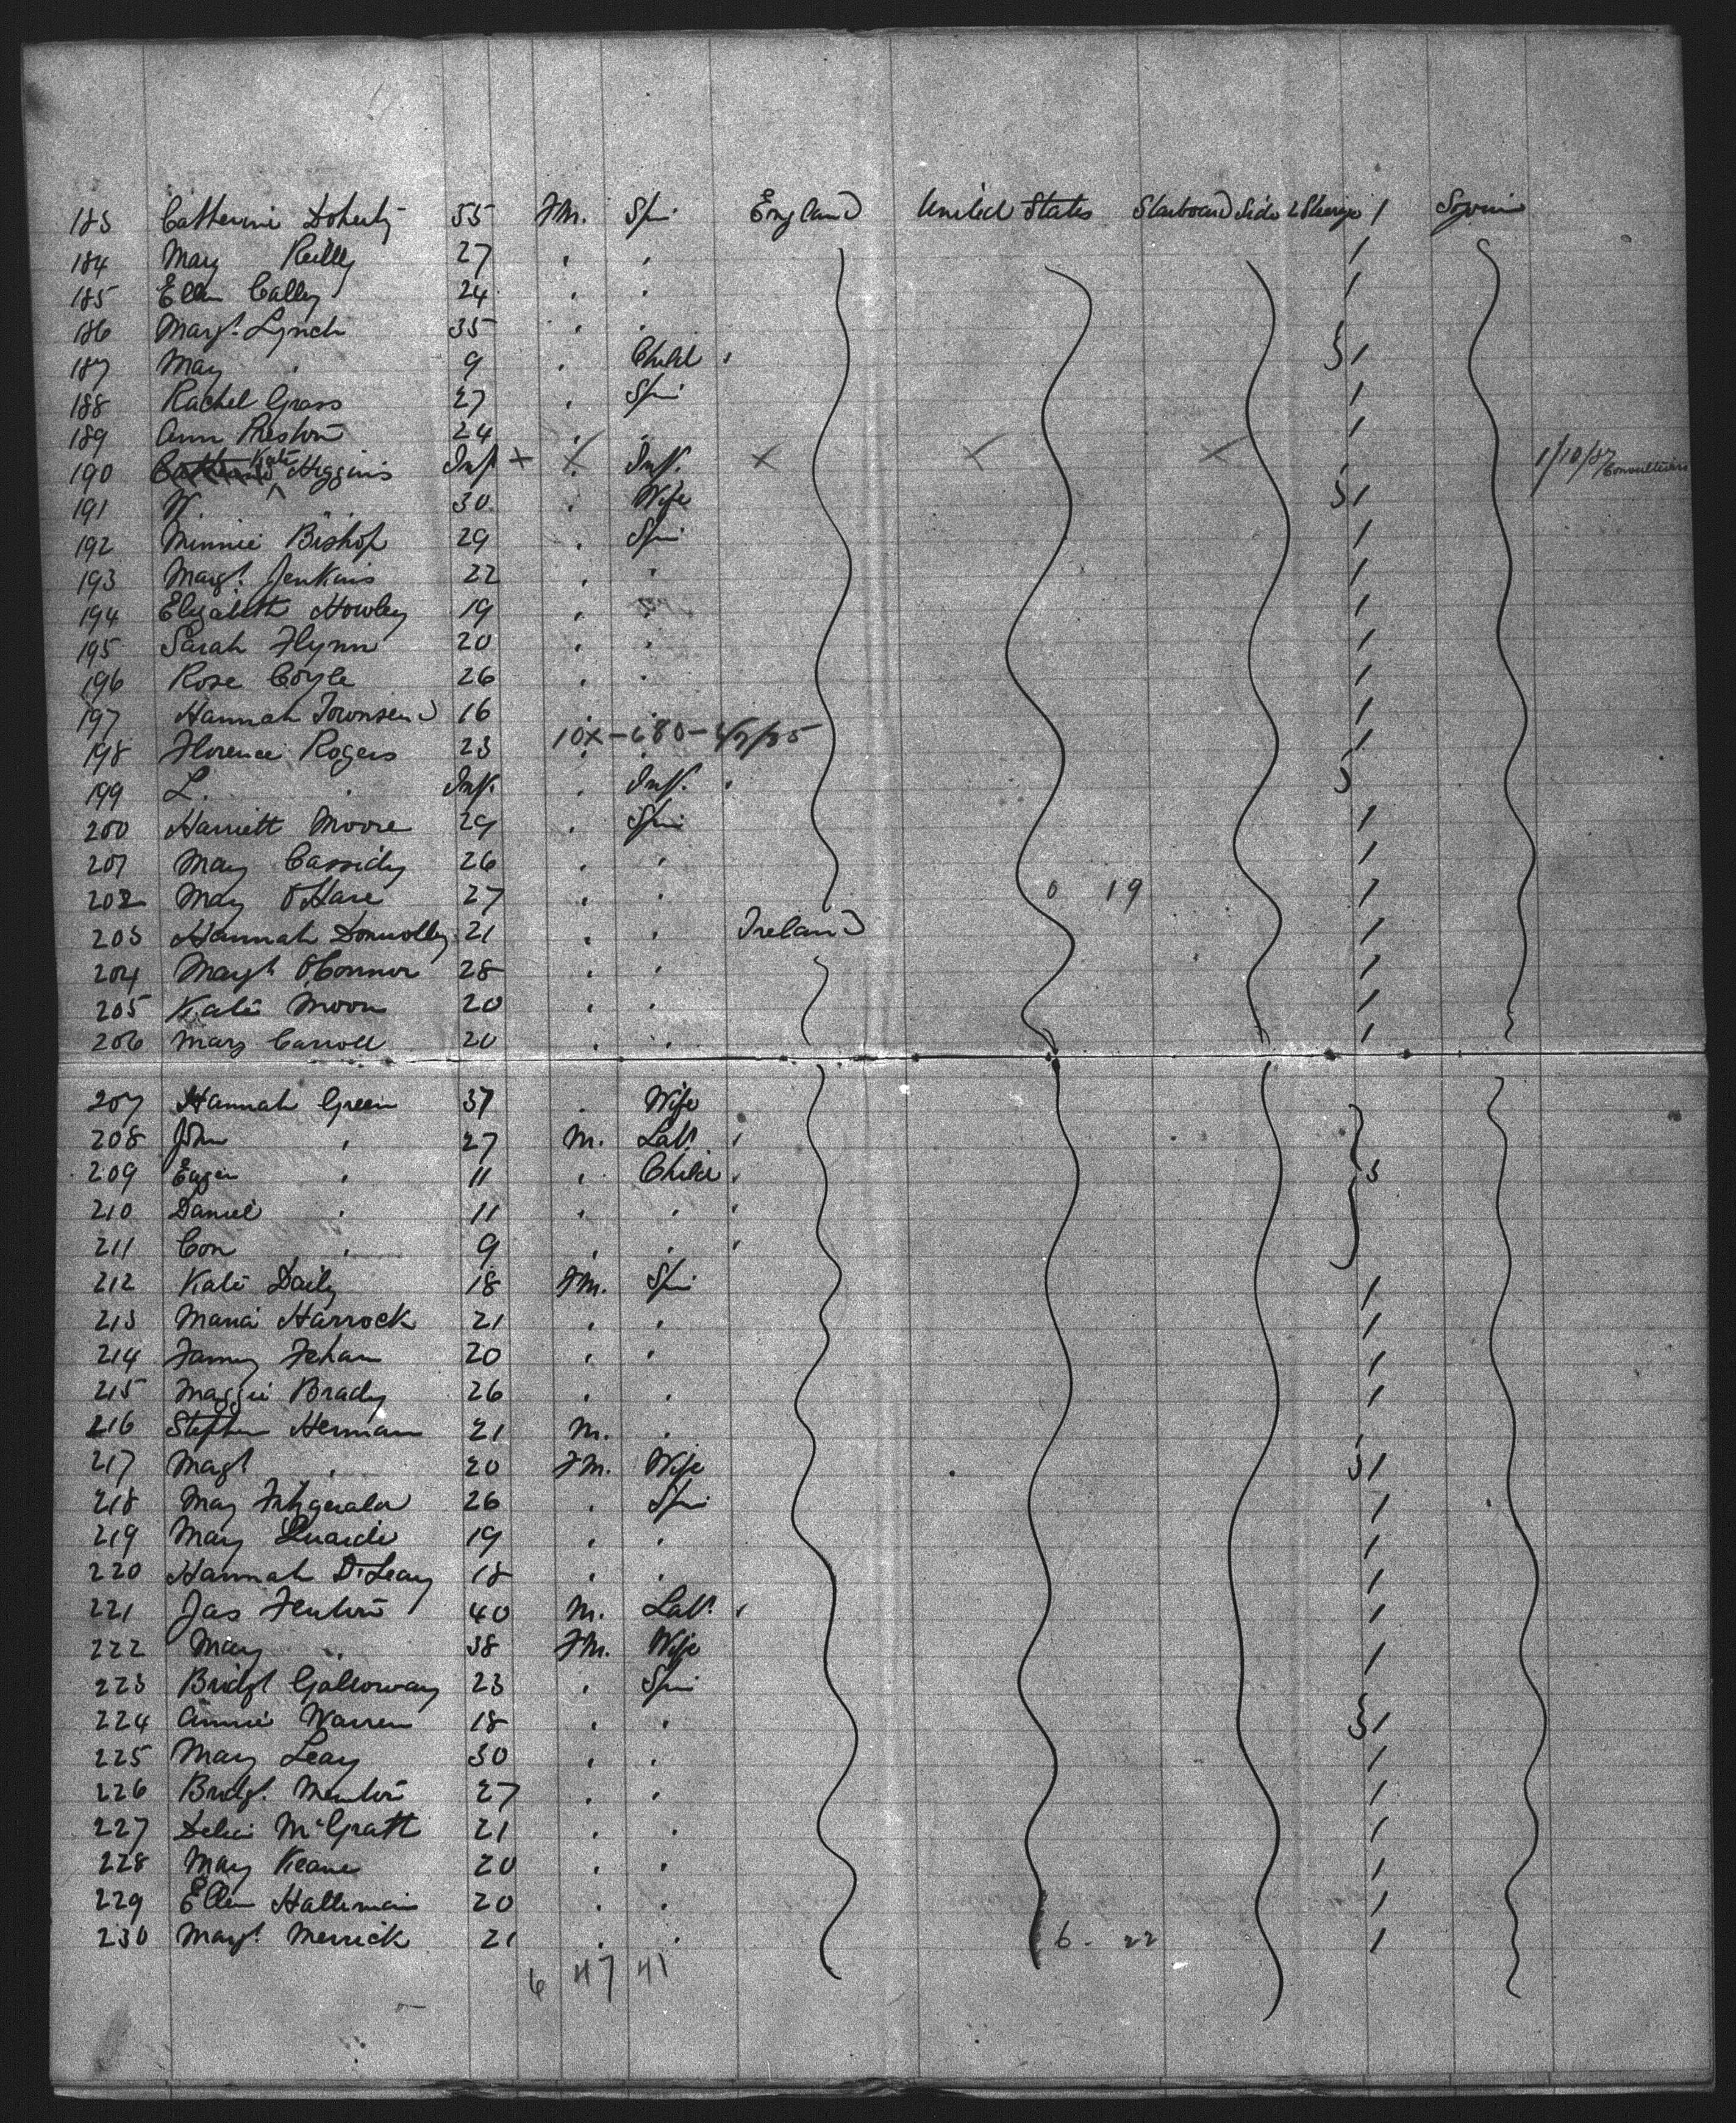 183 Catherine Doherty 55 Fm. Spin England United States Starboard Side 2 Steerge 1 Sojourn
184 Mary Reilly 27 " " 1
185 Ellen Cally 24 " " 1
186 Margt. Lynch 35 " "
187 Mary " 9 " Child " 1
188 Rachel Grass 27 " Spin 1
189 Ann Preston 24 " " 1
190 Kate Higgins Inf x x Inf. x x x 1/10/87 Convulsions
191 W. " 30 " Wife 1
192 Minnie Bishop 29 " Spin 1
193 Margt. Jenkins 22 " " 1
194 Elizabeth Howley 19 " " 1
195 Sarah Flynn 20 " " 1
196 Rose Coyle 26 " " 1
197 Hannah Townsend 16 " " 1
198 Florence Rogers 23 " " 1
199 L. " Inf. " Inf. "
200 Harriett Moore 29 " Spin 1
201 Mary Cassidy 26 " " 1
202 Mary O'Hare 27 " " 0 19 1
203 Hannah Donnolly 21 " " Ireland 1
204 Margt O'Connor 28 " " 1
205 Kate Moon 20 " " 1
206 Mary Carroll 20 " " 1
207 Hannah Green 37 " Wife
208 John " 27 M. Labr. "
209 Eugen " 11 " Child " 3
210 Daniel " 11 " " "
211 Con " 9 " " "
212 Kate Daily 18 Fm. Spin 1
213 Maria Harrock 21 " " 1
214 Fanny Fehan 20 " " 1
215 Maggie Brady 26 " " 1
216 Stephen Herman 21 M. "
217 Magt " 20 Fm. Wife 1
218 Mary Fitzgerald 26 " Spin 1
219 Mary 19 " " 1
220 Hannah O'Leary 18 " " 1
221 Jas Fenton 40 M. Labr. " 1
222 Mary " 38 Fm. Wife 1
223 Bridgt Galloway 23 " Spin
224 Annie Warren 18 " " 1
225 Mary Leary 30 " " 1
226 Bridgt. Menton 27 " " 1
227 Delia McGratt 21 " " 1
228 Mary Keane 20 " " 1
229 Ellen Hallernain 20 " " 1
230 Margt. Merrick 21 " " 6 - 22 1
6 47 41